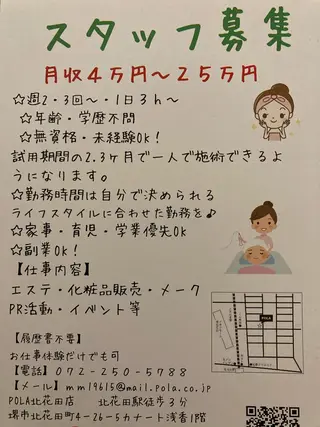 スタッフ募集
月収4万円～25万円
☆週2・3回～・1日3h～
☆年齢・学歴不問
☆無資格・未経験OK！
試用期間の2.3ヶ月で一人で施術できるよ
うになります。
☆勤務時間は自分で決められる
ライフスタイルに合わせた勤務を♪
☆家事・育児・学業優先OK
☆副業OK！
【仕事内容】
エステ・化粧品販売・メーク
PR活動・イベント等
【履歴書不要】
お仕事体験だけでも可
【電話】072-250-5788
【メール】mm19615@mail.pola.co.jp
POLA北花田店　北花田駅徒歩3分
堺市北花田町4-26-5カナート浅香1階
POLA